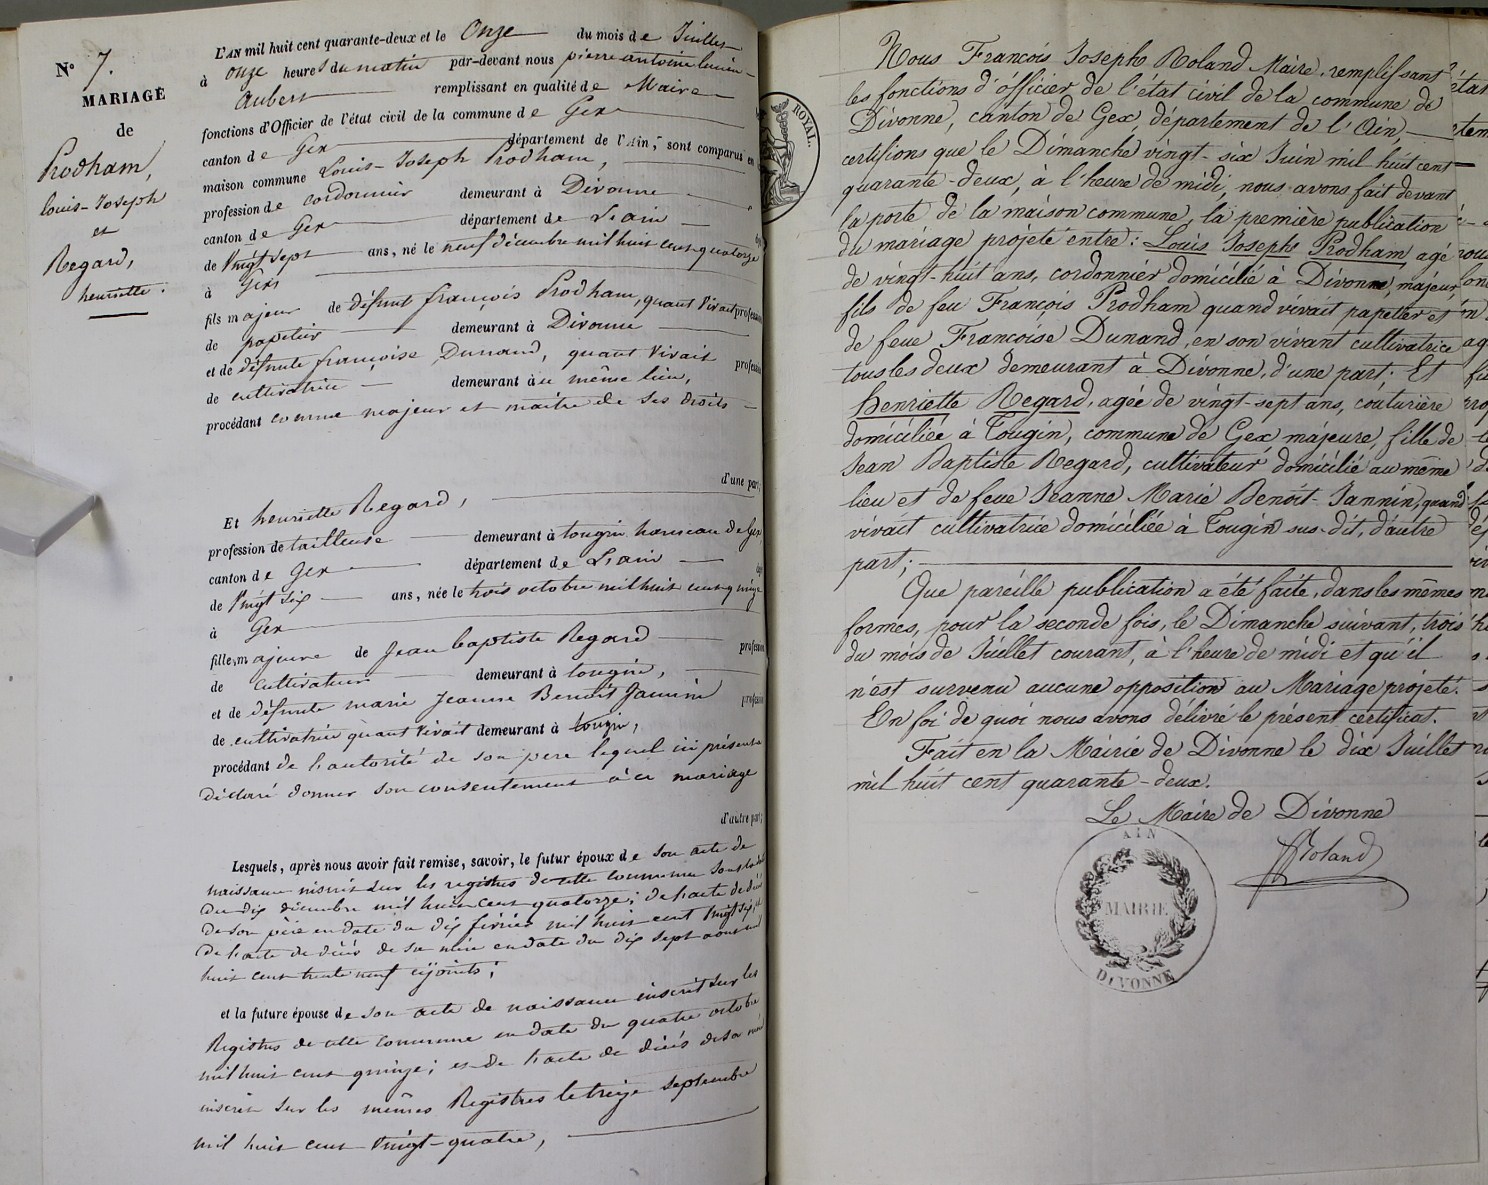 N° 7.
MARIAGE
de
Prodham,
louis-Joseph
et
Regard,
henriette.
L'AN mil huit cent quarante-deux et le Onze du mois de Juillet
à onze heures du matin par-devant nous pierre antoine lucien
Aubert remplissant en qualité de Maire
fonctions d'Officier de l'état civil de la commune de Gex
canton de Gex département de l'Ain, sont comparus en
maison commune Louis-Joseph Prodham,
profession de cordonnier demeurant à Divonne
canton de Gex département de L'ain
de Vingt sept ans, né le neuf décembre mil huit cent quatorze
à Gex
fils majeur de défunt françois Prodham, quant vivait profession
de papetier demeurant à Divonne
et de défunte françoise Dunand, quant vivait profession
de cultivatrice demeurant à au même lieu,
procédant comme majeur et maitre de ses droits
d'une part;
Et henriette Regard,
profession de tailleuse demeurant à tougin hameau de Gex
canton de Gex département de L'ain
de Vingt six ans, née le trois octobre mil huit cent quinze
à Gex
fille majeure de Jean baptiste Regard profession
de Cultivateur demeurant à tougin,
et de défunte marie Jeanne Benoit Jannin profession
de cultivatrice quant vivait demeurant à tougin,
procédant de l'autorité de son pere lequel ici présent a
déclaré donner son consentement à ce mariage
d'autre part;
Lesquels, après nous avoir fait remise, savoir, le futur époux de son acte de
naissance inscrit sur les registres de cette commune sous la date
du dix décembre mil huit cent quatorze; de l'acte de décès
de son père en date du dix février mil huit cent vingt six, et
de l'acte de décès de sa mère en date du dix sept aout mil
huit cent trente neuf cijoints;
et la future épouse de son acte de naissance inscrit sur les
Registres de cette commune en date du quatre octobre
mil huit cent quinze; et de l'acte de décès de sa mère
inscrit sur les mêmes Registres le treize septembre
mil huit cent vingt-quatre,
ROYAL.
Nous François Joseph Roland Maire, remplissant
les fonctions d'officier de l'état civil de la commune de
Divonne, canton de Gex, département de l'Ain,
certifions que le Dimanche vingt-six Juin mil huit cent
quarante-deux, à l'heure de midi, nous avons fait devant
la porte de la maison commune, la première publication
du mariage projeté entre: Louis Joseph Prodham agé
de vingt-huit ans, cordonnier domicilié à Divonne, majeur,
fils de feu François Prodham quand vivait papetier et
de feue Françoise Dunand, en son vivant cultivatrice
tous les deux demeurant à Divonne, d'une part; Et
Henriette Regard, agée de vingt-sept ans, couturière
domiciliée à Tougin, commune de Gex majeure, fille de
Jean Baptiste Regard, cultivateur domicilié au même
lieu et de feue Jeanne Marie Benoît-Jannin, quand
vivait cultivatrice domiciliée à Tougin sus-dit, d'autre
part;
Que pareille publication a été faite, dans les mêmes
formes, pour la seconde fois, le Dimanche suivant, trois
du mois de Juillet courant, à l'heure de midi et qu'il
n'est survenu aucune opposition au Mariage projeté.
En foi de quoi nous avons délivré le présent certificat.
Fait en la Mairie de Divonne le dix Juillet
mil huit cent quarante-deux.
Le Maire de Divonne
Roland
AIN
MAIRIE
DIVONNE